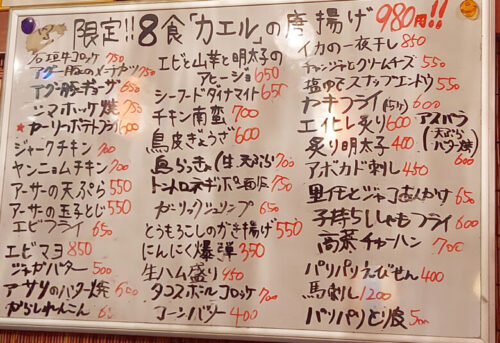 限定!!8食「カエル」の唐揚げ 980円!!
石垣牛コロッケ 750
アグー豚のメンチカツ 750
アグー豚ギョーザ 650
シマホッケ焼 750
★ガーリックポテトフライ 600
ジャークチキン 700
ヤンニョムチキン 700
アーサの天ぷら 550
アーサの玉子とじ 550
エビフライ 650
エビマヨ 850
ジャガバター 500
アサリのバター焼 600
からしれんこん
エビと山芋と明太子の
アヒージョ 650
シーフードダイナマイト 650
チキン南蛮 700
鳥皮ぎょうざ 600
島らっきょ(生 天ぷら) 700
トントロネギポン 750
ガーリックシュリンプ 650
とうもろこしのかき揚げ 550
にんにく爆弾 350
生ハム盛り 950
タコスボールコロッケ 700
コーンバター 400
イカの一夜干し 850
チャンジャとクリームチーズ 550
塩ゆでスナップエンドウ 550
カキフライ(5ケ) 600
エイヒレ炙り 600
炙り明太子 400
アスパラ
(天ぷら
バター焼)
600
アボカド刺し 450
里芋とジャコあんかけ 650
子持ちししゃもフライ 600
高菜チャーハン 700
パリパリえびせん 400
馬刺し 1200
パリパリとり皮 500